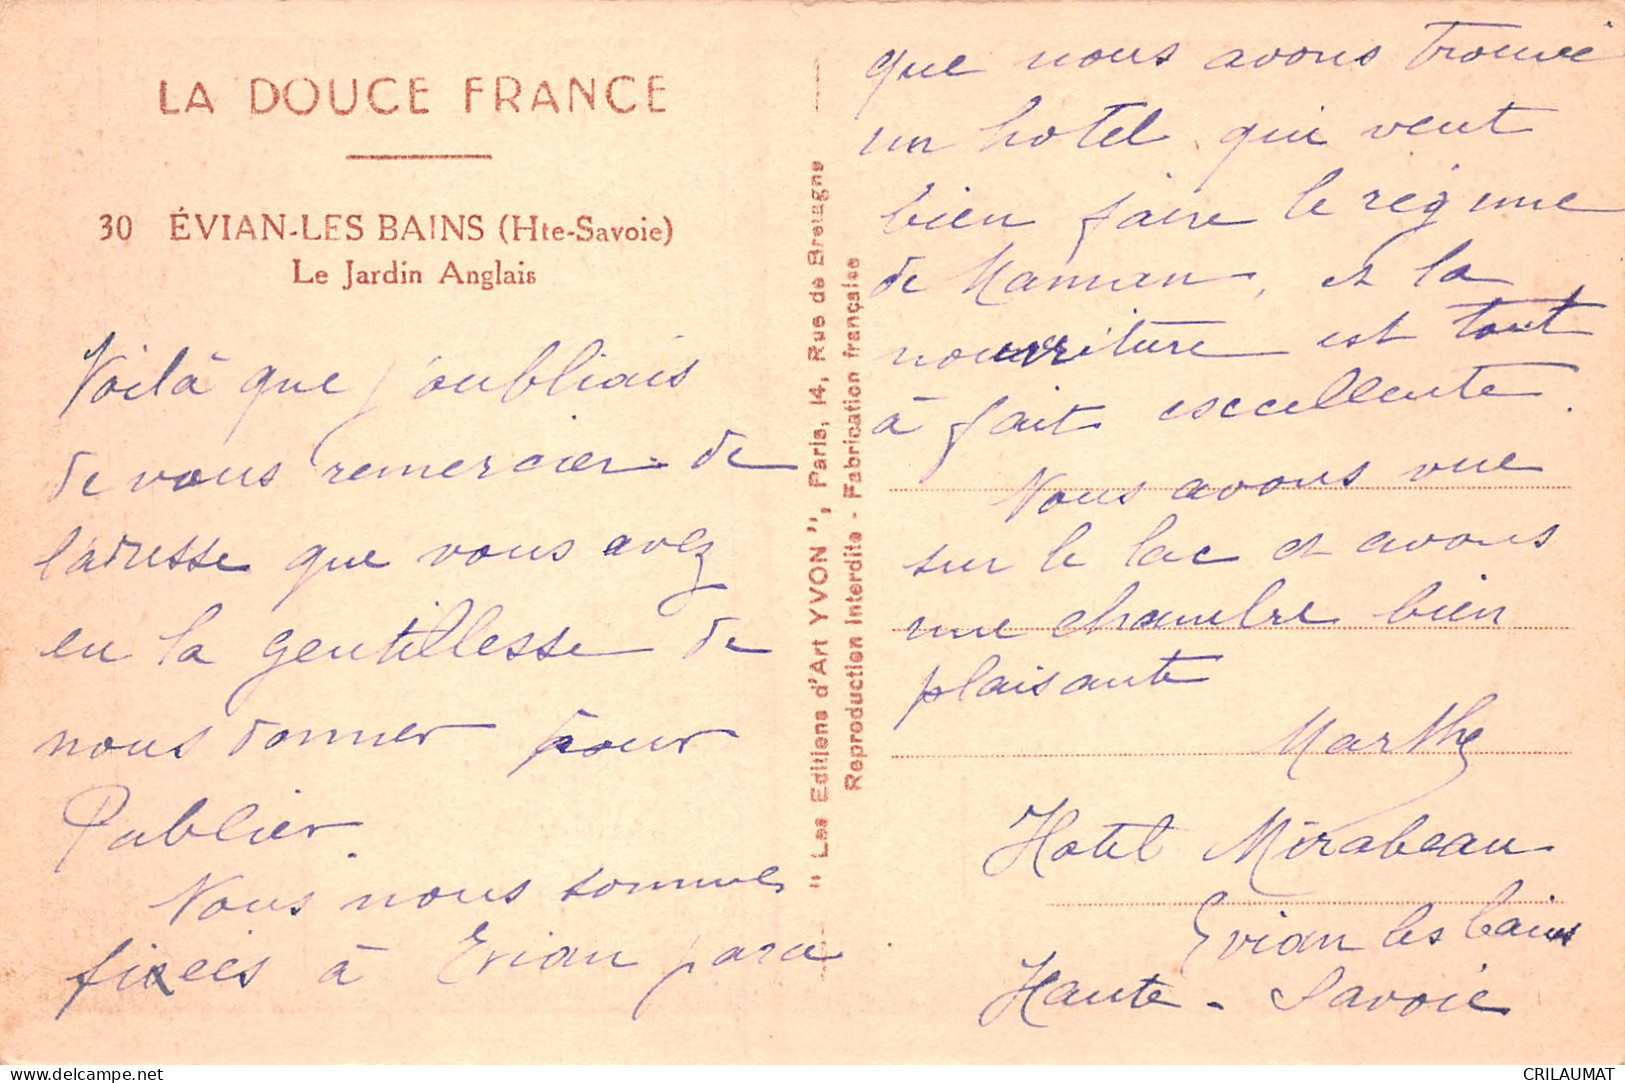 LA DOUCE FRANCE
30 ÉVIAN-LES BAINS (Hte-Savoie)
Le Jardin Anglais
Voilà que j'oubliais
de vous remercier de
l'adresse que vous avez
eu la gentillesse de
nous donner pour
Publier.
Nous nous sommes
fixées à Evian parce
" Les Editions d'Art YVON ", Paris, 14, Rue de Bretagne
Reproduction Interdite - Fabrication française
que nous avons trouvé
un hotel qui veut
bien faire le régime
de Maman, et la
nourriture est tout
à fait escellente.
Nous avons vue
sur le lac et avons
une chambre bien
plaisante
Marthe
Hotel Mirabeau
Evian les bains
Haute - Savoie
delcampe.net
CRILAUMAT